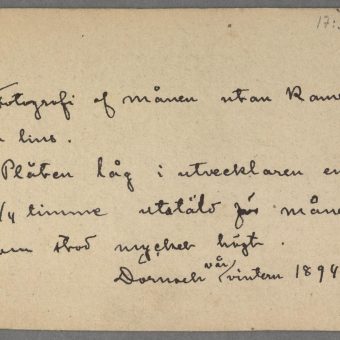 17:
Fotografi af månen utan Kame
lins.
Plåten låg i utvecklaren en
3/4 timme utstäld för måne
som stod mycket högt.
Dornach vår/vintern 1894